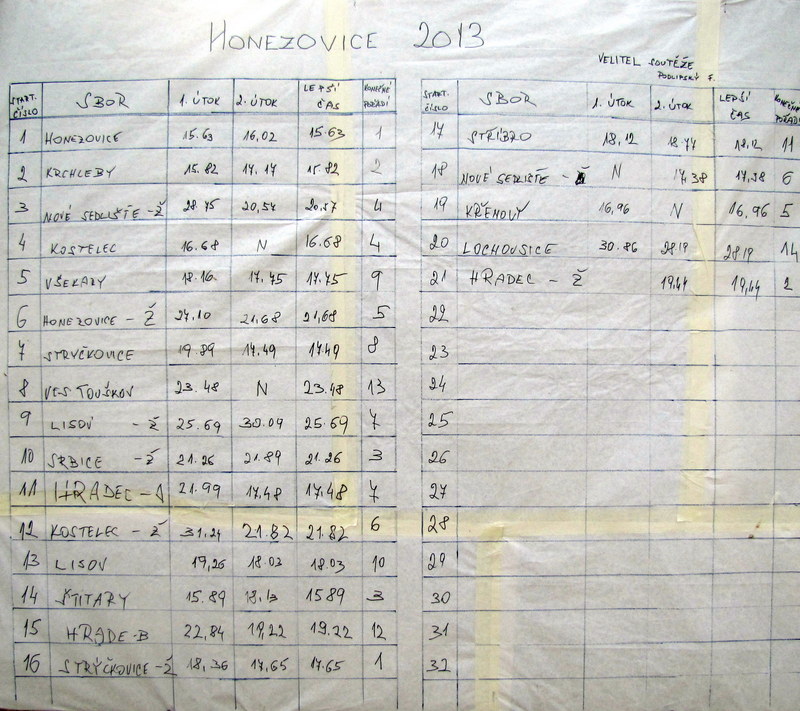 HONEZOVICE 2013
VELITEL SOUTĚŽE
PODLIPSKÝ F.
START. ČÍSLO SBOR 1. ÚTOK 2. ÚTOK LEPŠÍ ČAS KONEČNÉ POŘADÍ
1 HONEZOVICE 15.63 16,02 15.63 1
2 KRCHLEBY 15.82 17.17 15.82 2
3 NOVÉ SEDLIŠTĚ-Ž 28.75 20,57 20,57 4
4 KOSTELEC 16.68 N 16.68 4
5 VŠEKARY 18.16 17.75 17.75 9
6 HONEZOVICE - Ž 27.10 21,68 21,68 5
7 STRYČKOVICE 19.89 17.49 17.49 8
8 VES TOUŠKOV 23.48 N 23.48 13
9 LISOV - Ž 25.69 30.09 25.69 7
10 SRBICE - Ž 21.26 21.89 21.26 3
11 HRADEC - A 21.99 17,48 17,48 7
12 KOSTELEC - Ž 31,24 21.82 21.82 6
13 LISOV 19,26 18.03 18.03 10
14 ŠTITARY 15.89 18,13 15 89 3
15 HRADE-B 22,84 19,22 19.22 12
16 STRÝČKOVICE-Ž 18,36 17,65 17.65 1
START. ČÍSLO SBOR 1. ÚTOK 2. ÚTOK LEPŠÍ ČAS KONEČNÉ POŘADÍ
17 STŘÍBRO 18,12 18.77 18,12 11
18 NOVÉ SEDLIŠTE - Ž N 17,38 17,38 6
19 KŘENOVY 16,96 N 16,96 5
20 LOCHOUSICE 30.86 2819 2819 14
21 HRADEC - Ž 19,44 19,44 2
22
23
24
25
26
27
28
29
30
31
32